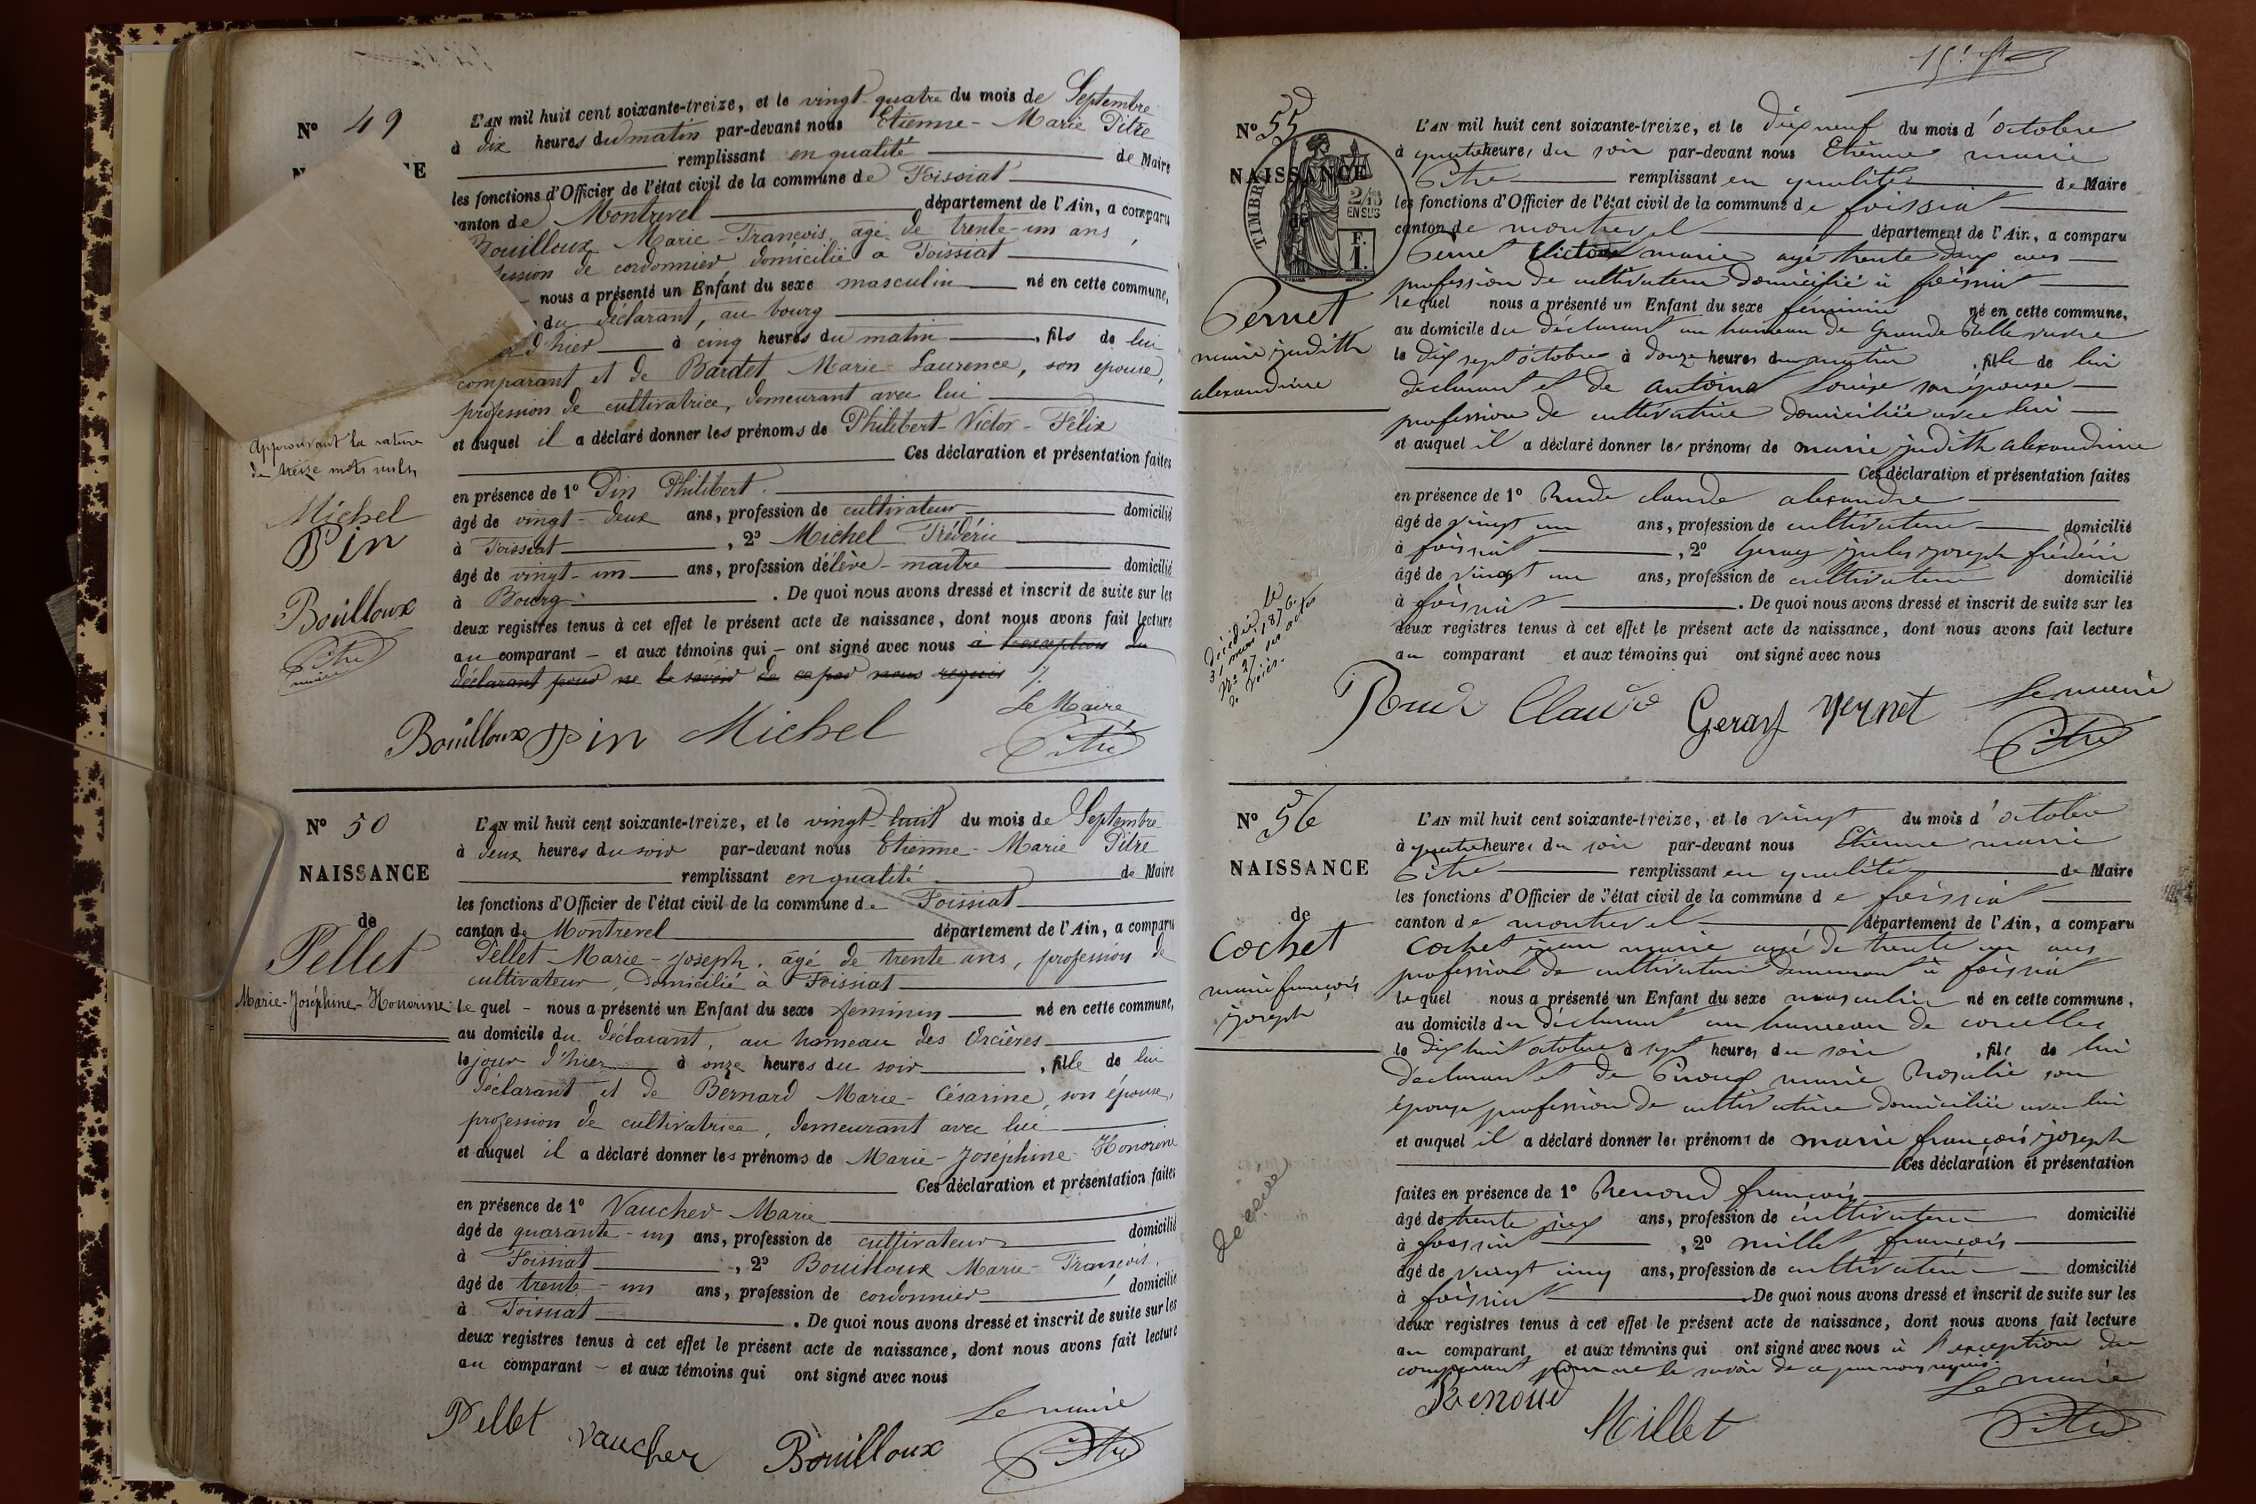 N° 49
L'AN mil huit cent soixante-treize, et le vingt-quatre du mois de Septembre
à dix heures du matin par-devant nous Etienne-Marie Pitre
remplissant en qualité de Maire
les fonctions d'Officier de l'état civil de la commune de Foissiat
canton de Montrevel département de l'Ain, a comparu
Bouilloux Marie-François, agé de trente-un ans,
de cordonnier domicilié à Foissiat
nous a présenté un Enfant du sexe masculin né en cette commune,
du déclarant, au bourg
d'hier à cinq heures du matin, fils de lui
comparant et de Bardet Marie-Laurence, son epouse,
profession de cultivatrice, demeurant avec lui
et auquel il a déclaré donner les prénoms de Philibert-Victor-Félix
Ces déclaration et présentation faites
en présence de 1° Pin Philibert
âgé de vingt-deux ans, profession de cultivateur domicilié
à Foissiat, 2° Michel Frédéric
âgé de vingt-un ans, profession d'élève-maître domicilié
à Bourg. De quoi nous avons dressé et inscrit de suite sur les
deux registres tenus à cet effet le présent acte de naissance, dont nous avons fait lecture
au comparant – et aux témoins qui – ont signé avec nous à l'exception du
déclarant pour ne le savoir de ce par nous requis
Approuvant la rature
de treize mots nuls,
Michel
Pin
Bouilloux
Pitre
maire
Le Maire
Bouilloux Pin Michel Pitre
N° 50
NAISSANCE
de
Pellet
Marie-Joséphine-Honorine
L'AN mil huit cent soixante-treize, et le vingt-huit du mois de Septembre
à deux heures du soir par-devant nous Etienne-Marie Pitre
remplissant en qualité de Maire
les fonctions d'Officier de l'état civil de la commune de Foissiat
canton de Montrevel département de l'Ain, a comparu
Pellet Marie-Joseph, âgé de trente ans, profession de
cultivateur, domicilié à Foissiat
lequel – nous a présenté un Enfant du sexe feminin né en cette commune,
au domicile du déclarant, au hameau des Orcières
le jour d'hier à onze heures du soir, fille de lui
déclarant et de Bernard Marie-Césarine, son épouse,
profession de cultivatrice, demeurant avec lui
et auquel il a déclaré donner les prénoms de Marie-Joséphine-Honorine
Ces déclaration et présentation faites
en présence de 1° Vaucher Marie
âgé de quarante-un ans, profession de cultivateur domicilié
à Foissiat, 2° Bouilloux Marie-François,
âgé de trente-un ans, profession de cordonnier domicilié
à Foissiat. De quoi nous avons dressé et inscrit de suite sur les
deux registres tenus à cet effet le présent acte de naissance, dont nous avons fait lecture
au comparant – et aux témoins qui ont signé avec nous
Le maire
Pellet Vaucher Bouilloux Pitre
N° 55
NAISSANCE
de
TIMBRE
2/10
EN SUS
F.
1.
Pernet
marie judith
alexandrine
L'AN mil huit cent soixante-treize, et le dix neuf du mois d'octobre
à quatre heures du soir par-devant nous Etienne marie
Pitre remplissant en qualité de Maire
les fonctions d'Officier de l'état civil de la commune de foissiat
canton de montrevel département de l'Ain, a comparu
Pernet Victor marie agé trente deux ans
profession de cultivateur domicilié à foissiat
lequel nous a présenté un Enfant du sexe féminin né en cette commune,
au domicile du déclarant au hameau de Grande
le dix sept octobre à douze heures du matin, fille de lui
déclarant et de antoinet Louise son épouse
profession de cultivatrice domiciliée avec lui
et auquel il a déclaré donner les prénoms de marie judith alexandrine
Ces déclaration et présentation faites
en présence de 1° Rude claude alexandre
âgé de vingt un ans, profession de cultivateur domicilié
à foissiat, 2° Geray jules joseph frédéric
âgé de vingt un ans, profession de cultivateur domicilié
à foissiat. De quoi nous avons dressé et inscrit de suite sur les
deux registres tenus à cet effet le présent acte de naissance, dont nous avons fait lecture
au comparant et aux témoins qui ont signé avec nous
décédée le
31 mars 1876.
N° 27 des actes
de décès.
Le maire
Rude Claude Geray Pernet Pitre
N° 56
NAISSANCE
de
Cochet
marie françois
joseph
L'AN mil huit cent soixante-treize, et le vingt du mois d'octobre
à quatre heures du soir par-devant nous Etienne marie
Pitre remplissant en qualité de Maire
les fonctions d'Officier de l'état civil de la commune de foissiat
canton de montrevel département de l'Ain, a comparu
Cochet jean marie agé de trente un ans
profession de cultivateur demeurant à foissiat
lequel nous a présenté un Enfant du sexe masculin né en cette commune,
au domicile du déclarant au hameau de corcelles
le dix huit octobre à sept heures du soir, fils de lui
déclarant et de Piroud marie Rosalie son
épouse profession de cultivatrice domiciliée avec lui
et auquel il a déclaré donner les prénoms de marie françois joseph
Ces déclaration et présentation
faites en présence de 1° Renoud françois
âgé de trente ans, profession de cultivateur domicilié
à foissiat, 2° millet françois
âgé de vingt cinq ans, profession de cultivateur domicilié
à foissiat. De quoi nous avons dressé et inscrit de suite sur les
deux registres tenus à cet effet le présent acte de naissance, dont nous avons fait lecture
au comparant et aux témoins qui ont signé avec nous à l'exception du
comparant pour ne le savoir de ce par nous requis.
décédé
Le maire
Renoud Millet Pitre